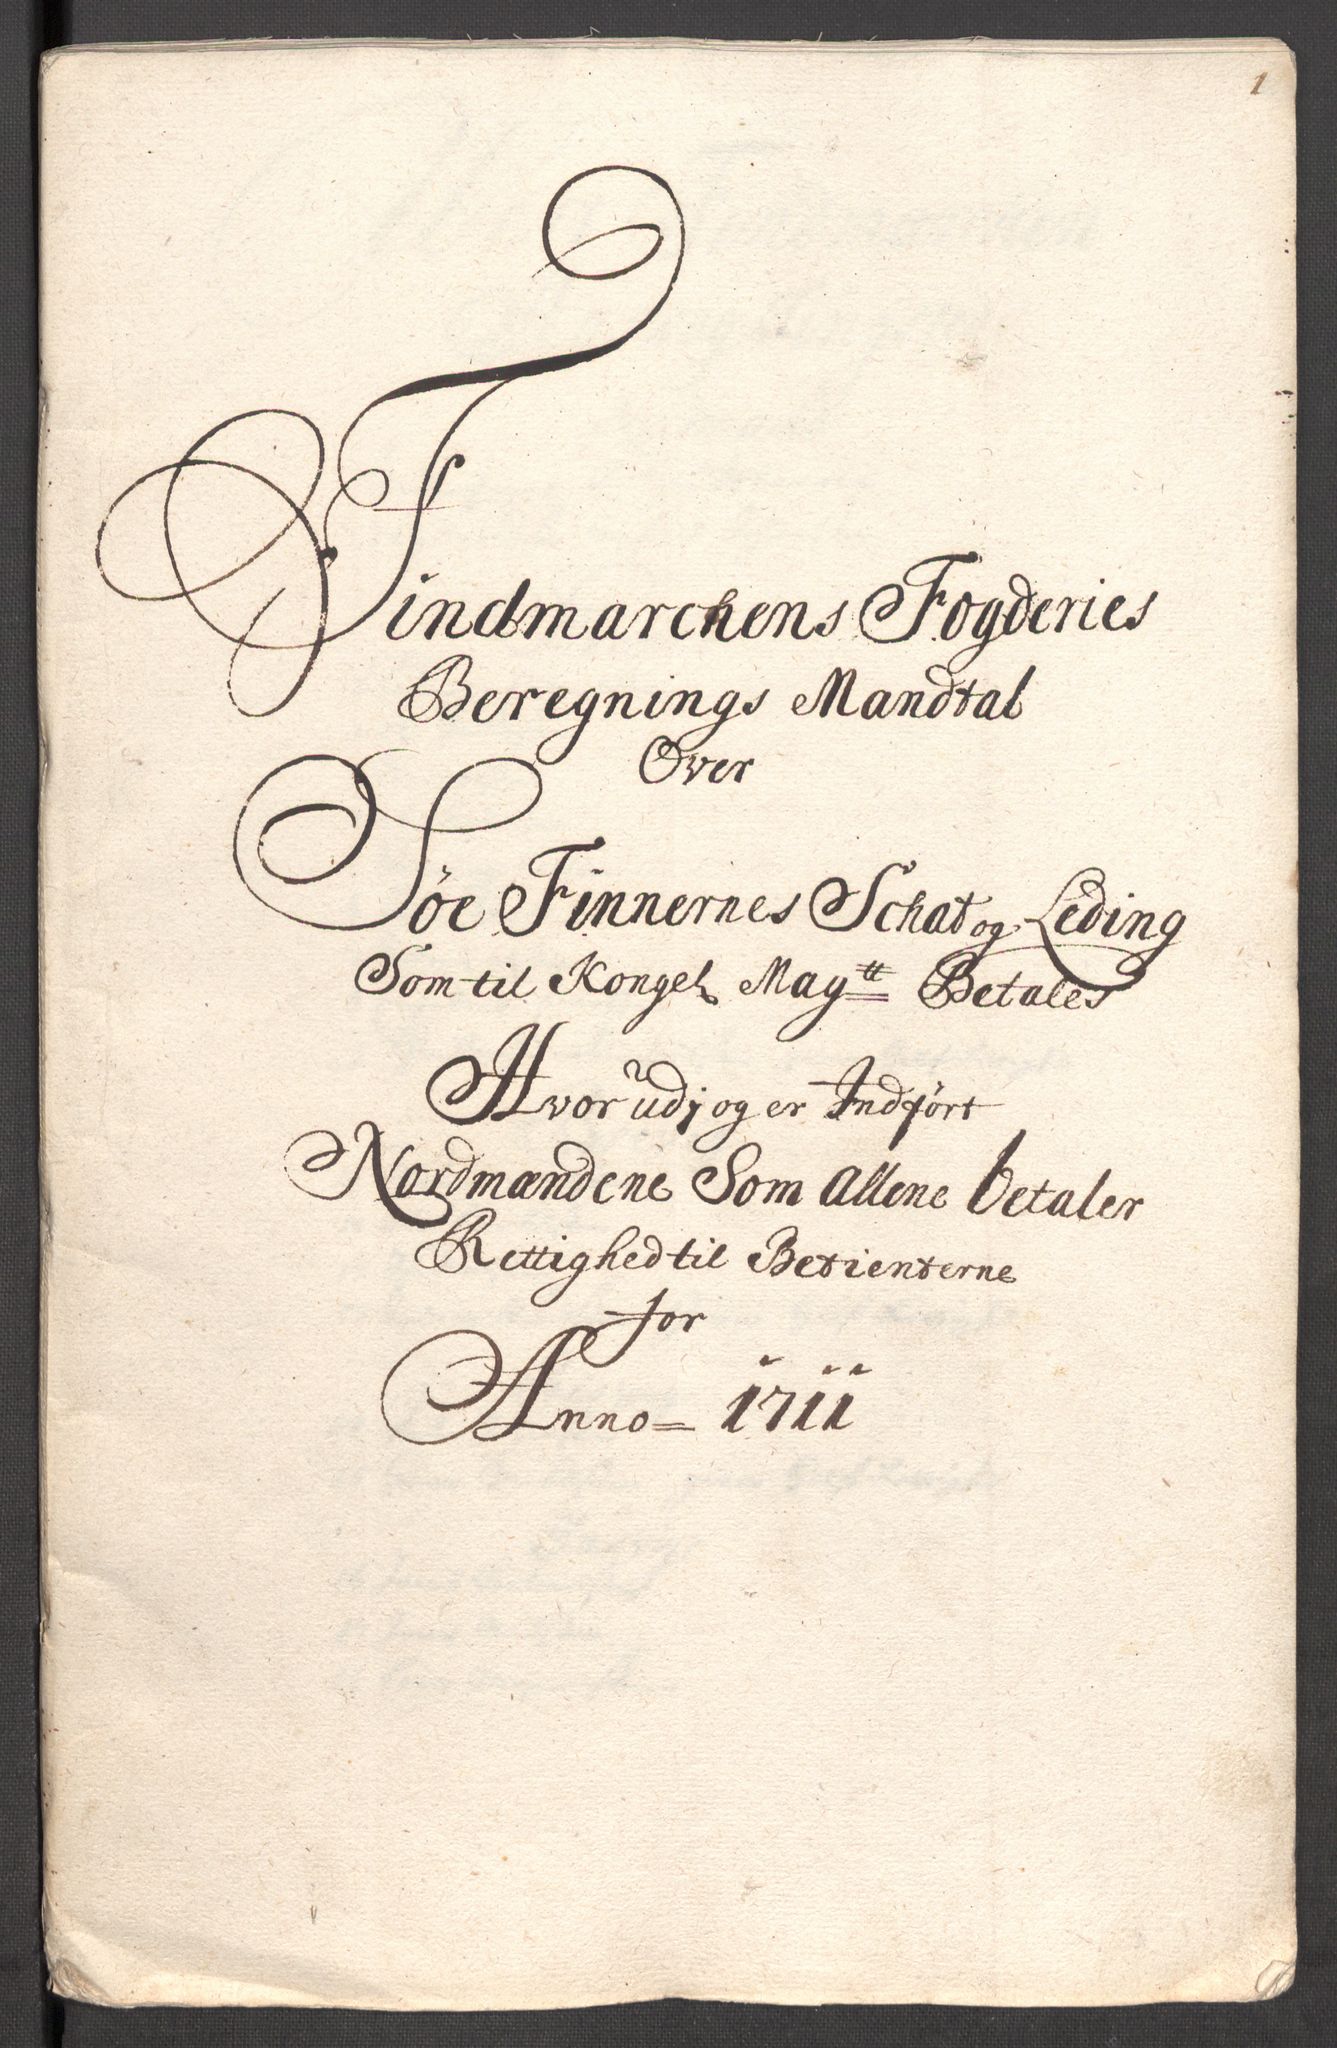 1
Findmarchens Fogderies
Beregnings Mandtal
Over
Søe Finnernes Schat og Leding
Som til Kongel Maytt Betales
Hvor udj og er Indført
Nordmændene Som allene betaler
Rettighed til Betienterne
for
Anno= 1711